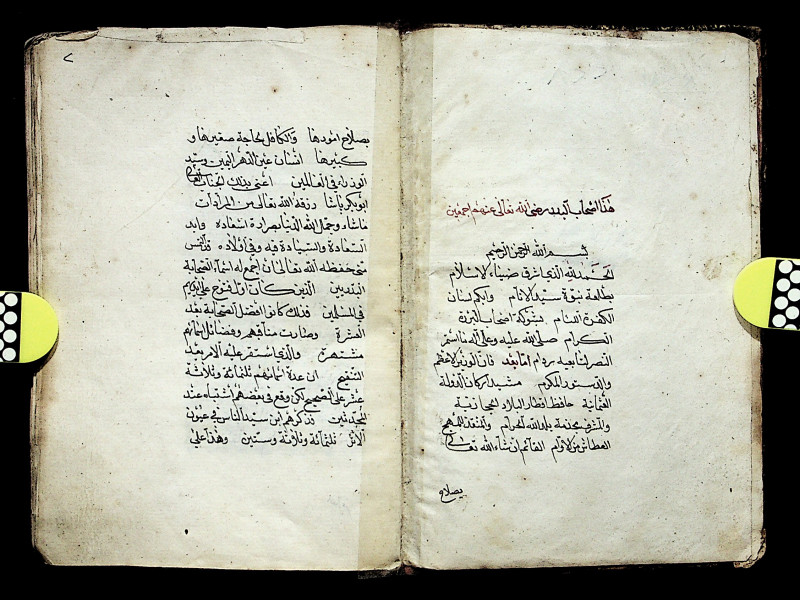 هذا اصحاب البدر رضى الله تعالى عنهم اجمعين
بسم الله الرحمن الرحيم
الحمد لله الذي اشرق ضياء الاسلام
بطلعة نبوة سيد الانام وابكم لسان
الكفرة اللئام بشوكة اصحاب البررة
الكرام صلى الله عليه وعلى آله ما استمر
النصر لتابعيه ودام اما بعد فان الوزير الاعظم
والدستور المكرم مشيد اركان الدولة
العثمانية حافظ اقطار البلاد الحجازية
والمشرف بخدمة بلد الله الحرام والمنقذ للمهج
العطاش من الاوام القائم ان شاء الله تعالى
بصلاح
٧
بصلاح امورها والكافل لحاجة صغيرها و
كبيرها انسان عين الدهر اليمين وسيد
الوزراء في العالمين اعنى بذلك الجناب العالي
ابو بكر باشا رزقه الله تعالى من المرادات
ماشاء وجمل الله الدنيا بصدارة اسعاده وابد
السعادة والسيادة فيه وفي اولاده فالتمس
منى حفظه الله تعالى ان اجمع له اسماء الصحابة
البدريين الذين كان اول فتوح على ايديهم
في المسلمين فذلك كانوا افضل الصحابة بعد
العشرة وصارت مناقبهم وفضائل اسمائهم
مشتهرة والذي استقر عليه الامر بعد
التنقيح ان عدة اسمائهم ثلثمائة وثلاثة
عشر على الصحيح لكن وقع في بعضهم اشتباه عند
المحدثين فذكرهم ابن سيد الناس في عيون
الاثر ثلثمائة وثلاثة وستين وهذا على